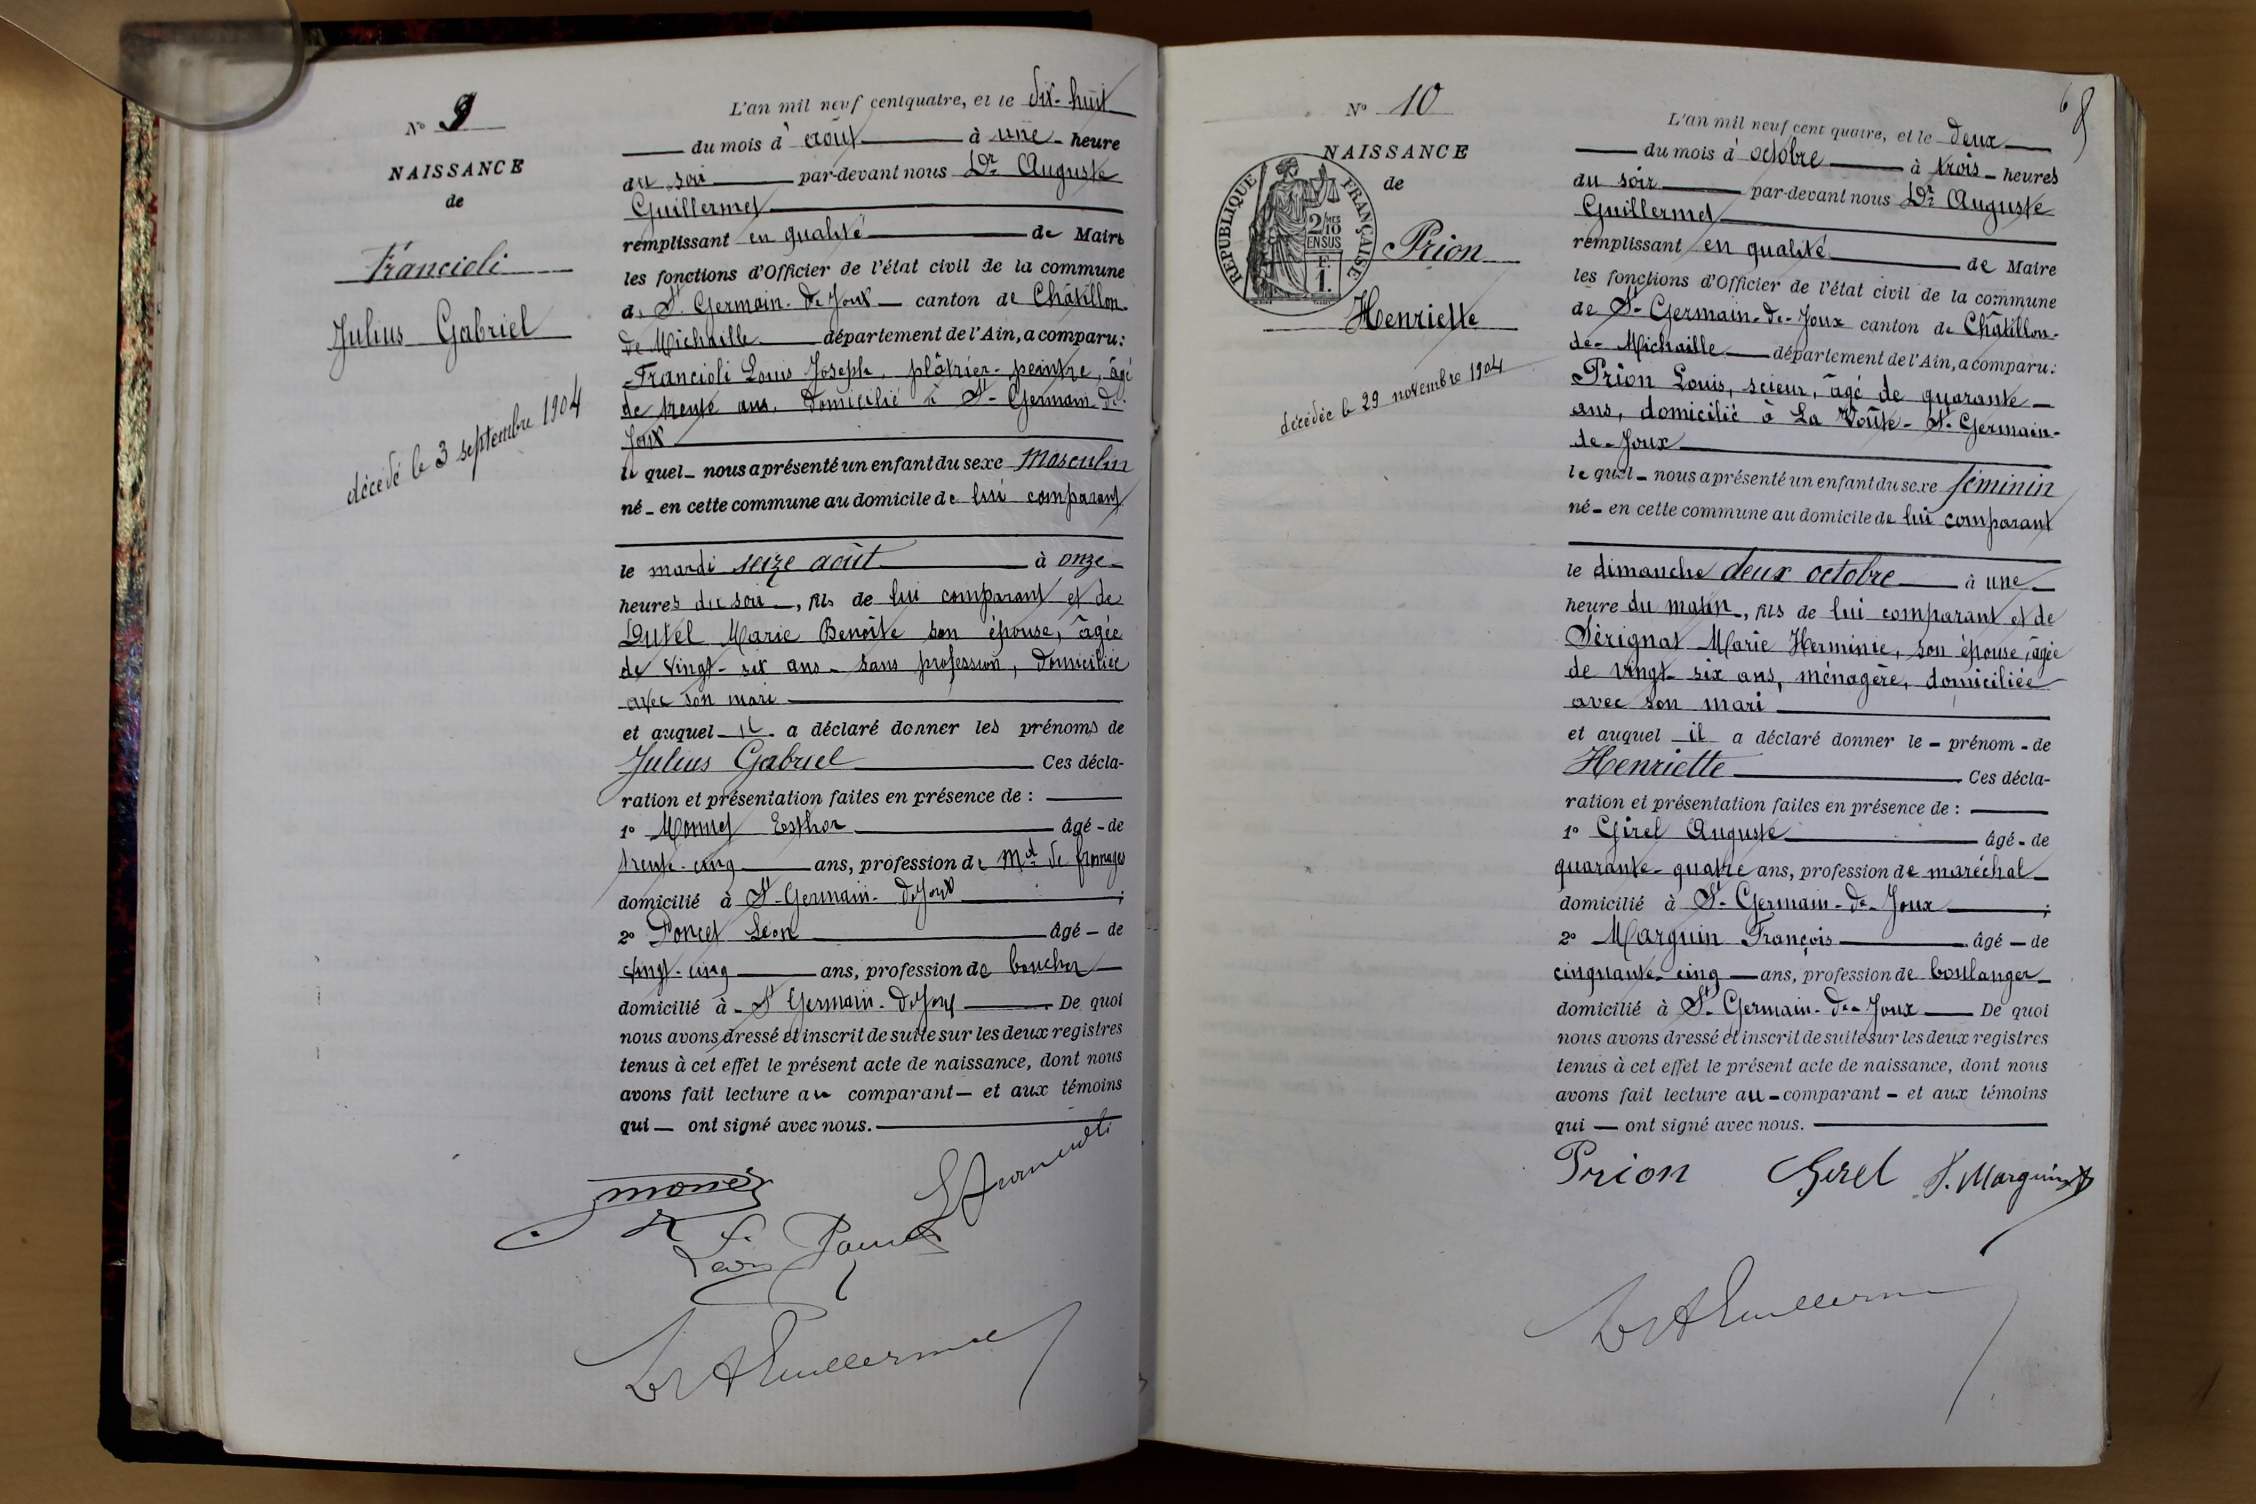 N° 9
NAISSANCE
de
Francioli
Julius Gabriel
décédé le 3 septembre 1904
L'an mil neuf cent quatre, et le dix-huit
du mois d'août à une heure
du soir par-devant nous Dr Auguste
Guillermet
remplissant en qualité de Maire
les fonctions d'Officier de l'état civil de la commune
de St Germain-de-Joux canton de Châtillon
de Michaille département de l'Ain, a comparu:
Francioli Louis Joseph, plâtrier-peintre, âgé
de trente ans, domicilié à St-Germain-de-
Joux
lequel nous a présenté un enfant du sexe Masculin
né en cette commune au domicile de lui comparant
le mardi seize août à onze
heures du soir, fils de lui comparant et de
Dutel Marie Benoîte son épouse, âgée
de vingt-six ans sans profession, domiciliée
avec son mari
et auquel il a déclaré donner les prénoms de
Julius Gabriel Ces décla-
ration et présentation faites en présence de :
1° Monnet Esther âgé de
trente-cinq ans, profession de Md de fromages
domicilié à St-Germain-de-Joux ;
2° Poncet Léon âgé de
vingt-cinq ans, profession de boucher
domicilié à St Germain-de-Joux De quoi
nous avons dressé et inscrit de suite sur les deux registres
tenus à cet effet le présent acte de naissance, dont nous
avons fait lecture au comparant et aux témoins
qui ont signé avec nous.
monet
Léon Poncet
Dr A Guillermet
6
8
N° 10
NAISSANCE
de
RÉPUBLIQUE FRANÇAISE
2/10 MES
EN SUS
F.
1.
Prion
Henriette
décédée le 29 novembre 1904
L'an mil neuf cent quatre, et le deux
du mois d'octobre à trois heures
du soir par-devant nous Dr Auguste
Guillermet
remplissant en qualité de Maire
les fonctions d'Officier de l'état civil de la commune
de St-Germain-de-Joux canton de Châtillon-
de-Michaille département de l'Ain, a comparu:
Prion Louis, scieur, âgé de quarante
ans, domicilié à La Voûte-St-Germain-
de-Joux
lequel nous a présenté un enfant du sexe féminin
né en cette commune au domicile de lui comparant
le dimanche deux octobre à une
heure du matin, fils de lui comparant et de
Sérignat Marie Herminie, son épouse, âgée
de vingt-six ans, ménagère, domiciliée
avec son mari
et auquel il a déclaré donner le prénom de
Henriette Ces décla-
ration et présentation faites en présence de :
1° Girel Auguste âgé de
quarante-quatre ans, profession de maréchal
domicilié à St-Germain-de-Joux ;
2° Marguin François âgé de
cinquante-cinq ans, profession de boulanger
domicilié à St-Germain-de-Joux De quoi
nous avons dressé et inscrit de suite sur les deux registres
tenus à cet effet le présent acte de naissance, dont nous
avons fait lecture au comparant et aux témoins
qui ont signé avec nous.
Prion Girel F. Marguin
Dr A Guillermet